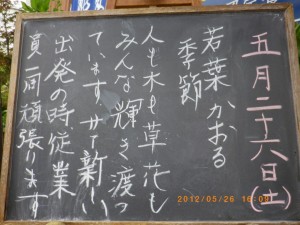 五月二十六日(土)
若葉かおる
季節
人も木も草花も
みんな輝き渡っ
ています。サア新しい
出発の時、従業
員一同頑張ります
2012/05/26